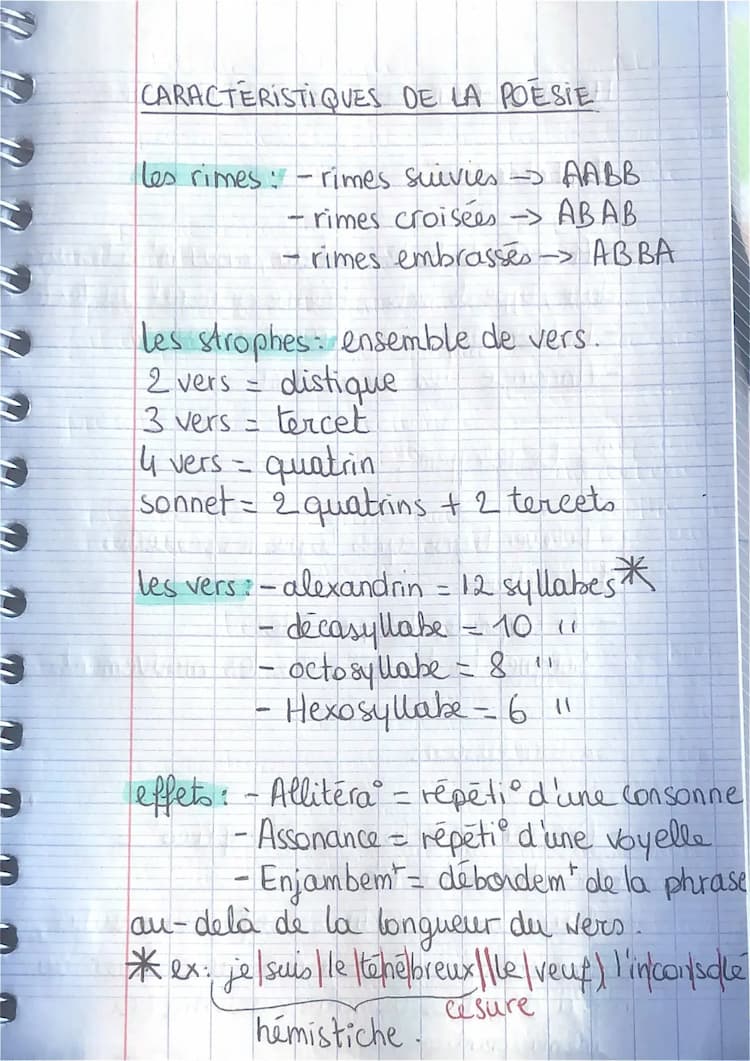 CARACTÉRISTIQUES DE LA POÉSIE
les rimes : - rimes suivies -> AABB
- rimes croisées -> ABAB
- rimes embrassés -> ABBA
les strophes : ensemble de vers.
2 vers = distique
3 vers = tercet
4 vers = quatrin
sonnet = 2 quatrins + 2 tercets
les vers : - alexandrin = 12 syllabes*
- décasyllabe = 10 "
- octosyllabe = 8 "
- Hexosyllabe = 6 "
effets : - Allitéra° = répéti° d'une consonne
- Assonance = répéti° d'une voyelle
- Enjambemt = débordemt de la phrase
au-delà de la longueur du vers.
* ex: je|suis|le|téné|breux||le|veuf,|l'in|con|solé
césure
hémistiche.